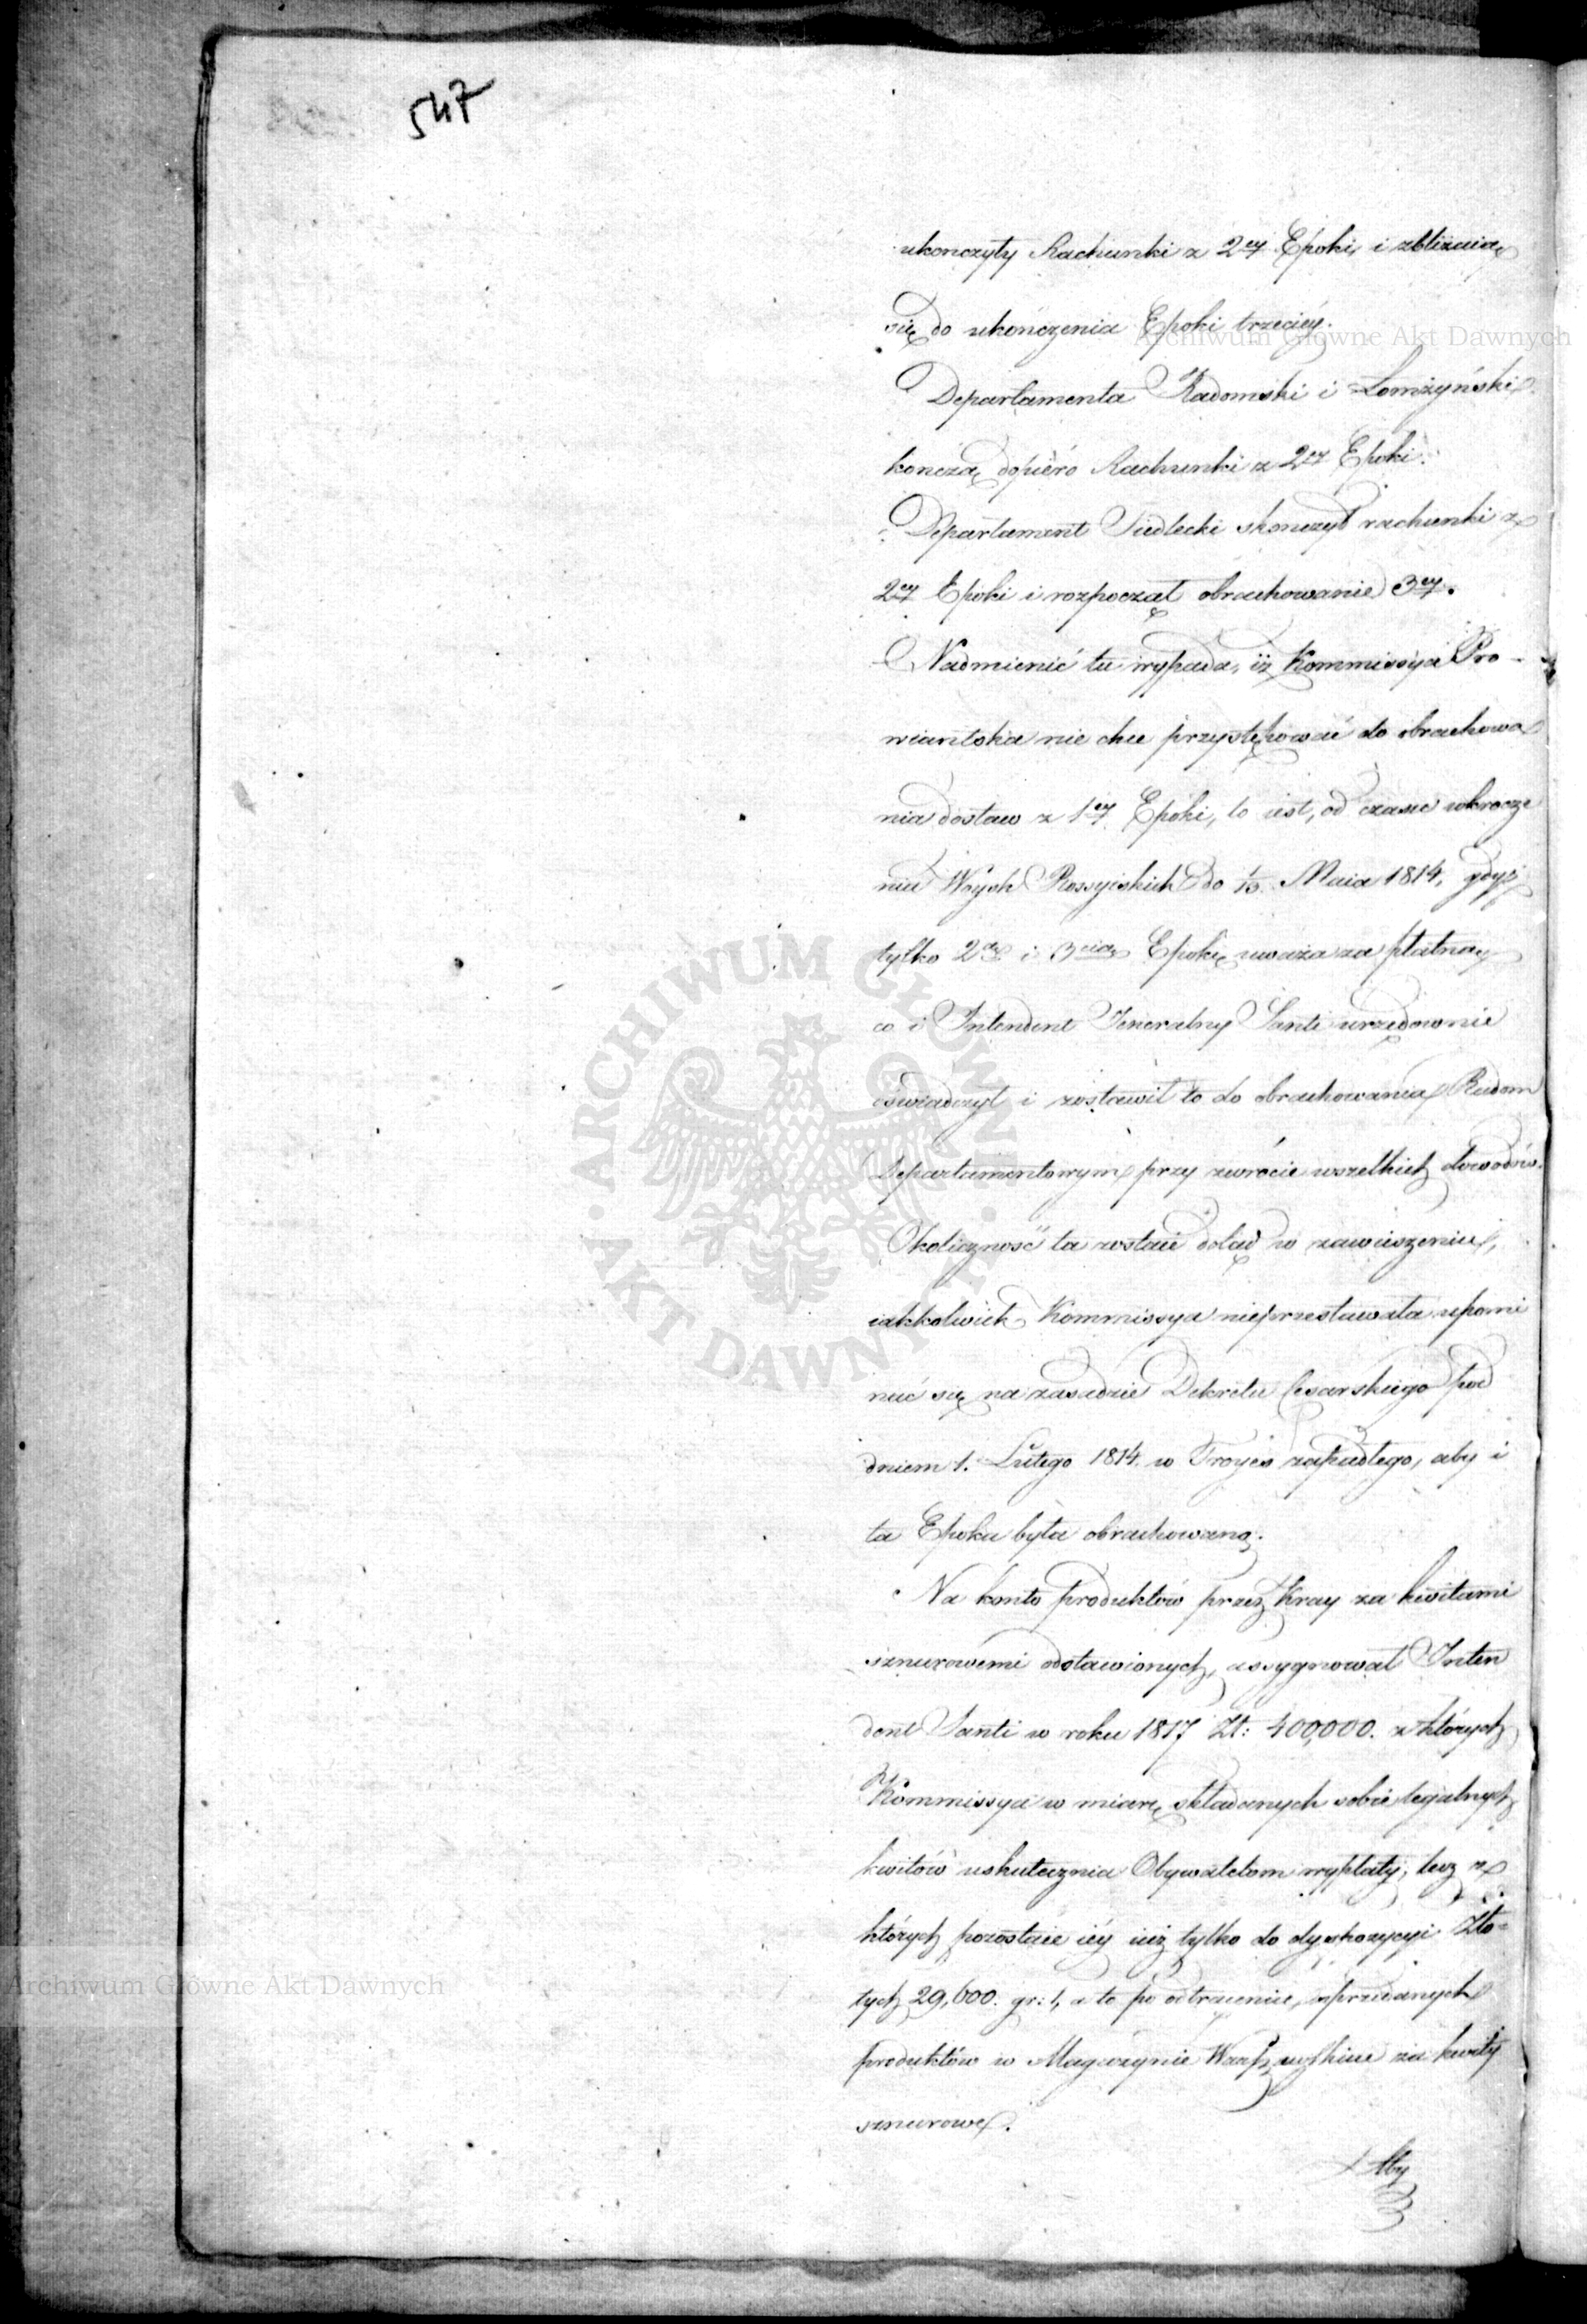 547
ukonczyły Rachunki z 2ey Epoki, i zbliżaią
się do ukończenia Epoki trzeciéy.
Departamenta Radomski i Łomżyński
kończą dopiéro Rachunki z 2ey Epoki.
Departament Siedlecki skonczył rachunki z
2ey Epoki i rozpoczął obrachowanie 3ey.
Nadmienić tu wypada, iż Kommissya Pro-
wiantska nie chce przystępować do obrachowa
nia dostaw z 1ey Epoki, to iest, od czasu wkrocze
nia Woysk Rossyiskich do Maia 1814, gdyż
tylko 2ą i 3cią Epokę uważa za płatną
co i Intendent Jeneralny Santi urzędownie
oświadczył i zostawił to do obrachowania Radom
Departamentowym przy zwrócie wszelkich dowodów.
Okoliczność ta zostaie dotąd w zawieszeniu,
iakkolwiek Kommissya nieprzestawała upomi
nać się na zasadzie Dekretu Cesarskiego pod
dniem 1. Lutego 1814. w Troyes zapadłego, aby i
ta Epoka była obrachowaną.
Na konto produktów przez Kray za kwitami
sznurowemi odstawionych, assygnował Inten
dent Santi w roku 1817 Zł: 400,000. z których
Kommissya w miarę składanych sobie legalnych
kwitów uskutecznia Obywatelom wypłaty, lecz z
których pozostaie iéy iuż tylko do dyspozycyi Zło-
tych 29,600. gr: 1, a to po odtrąceniu, sprzedanych
produktów w Magazynie Warszawskim za kwity
sznurowe.
Aby
Archiwum Główne Akt Dawnych
ARCHIWUM GŁÓWNE AKT DAWNYCH
Archiwum Główne Akt Dawnych